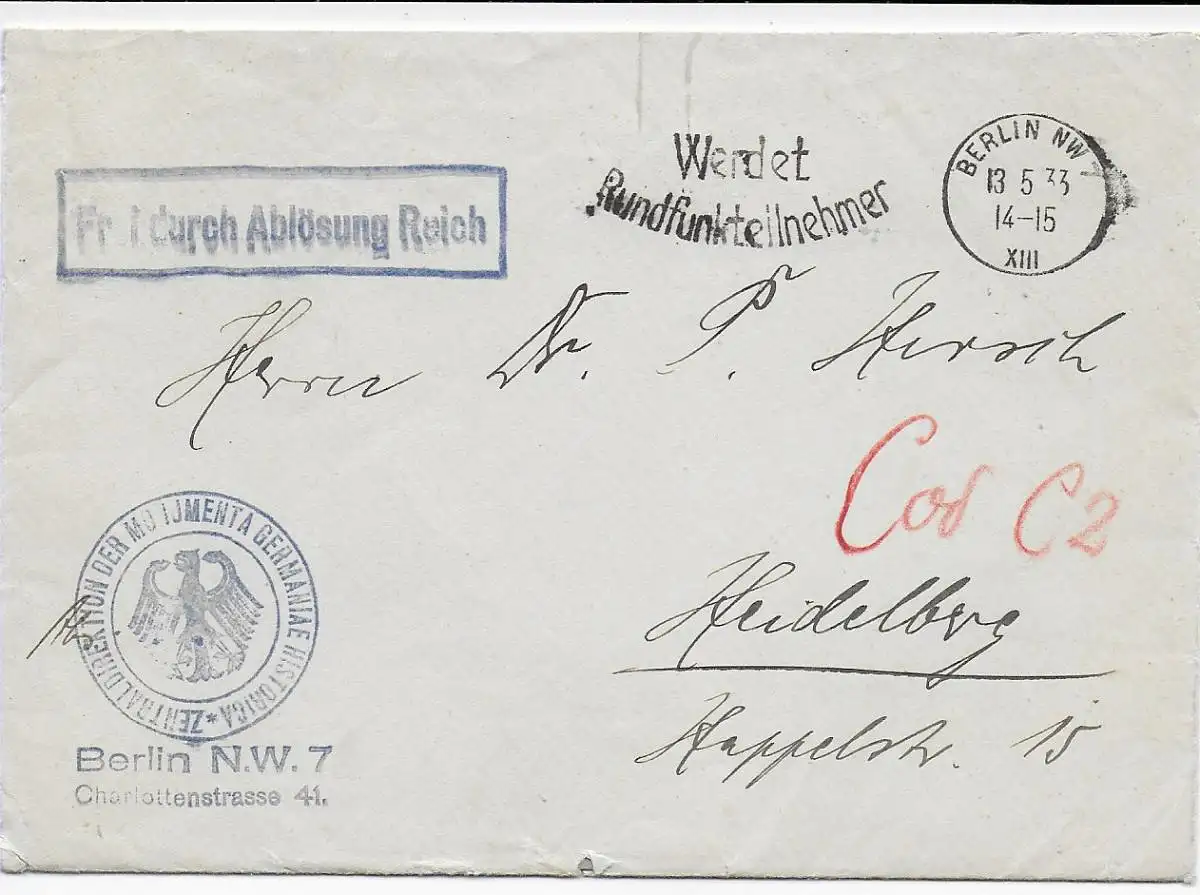 Werdet
Rundfunkteilnehmer
BERLIN NW 7
13 5 33
14-15
XIII
Frei durch Ablösung Reich
Herrn Dr. P. Hirsch
Cod C2
Heidelberg
Happelstr. 15
ZENTRALDIREKTION DER MONUMENTA GERMANIAE HISTORICA *
Berlin N.W. 7
Charlottenstrasse 41.